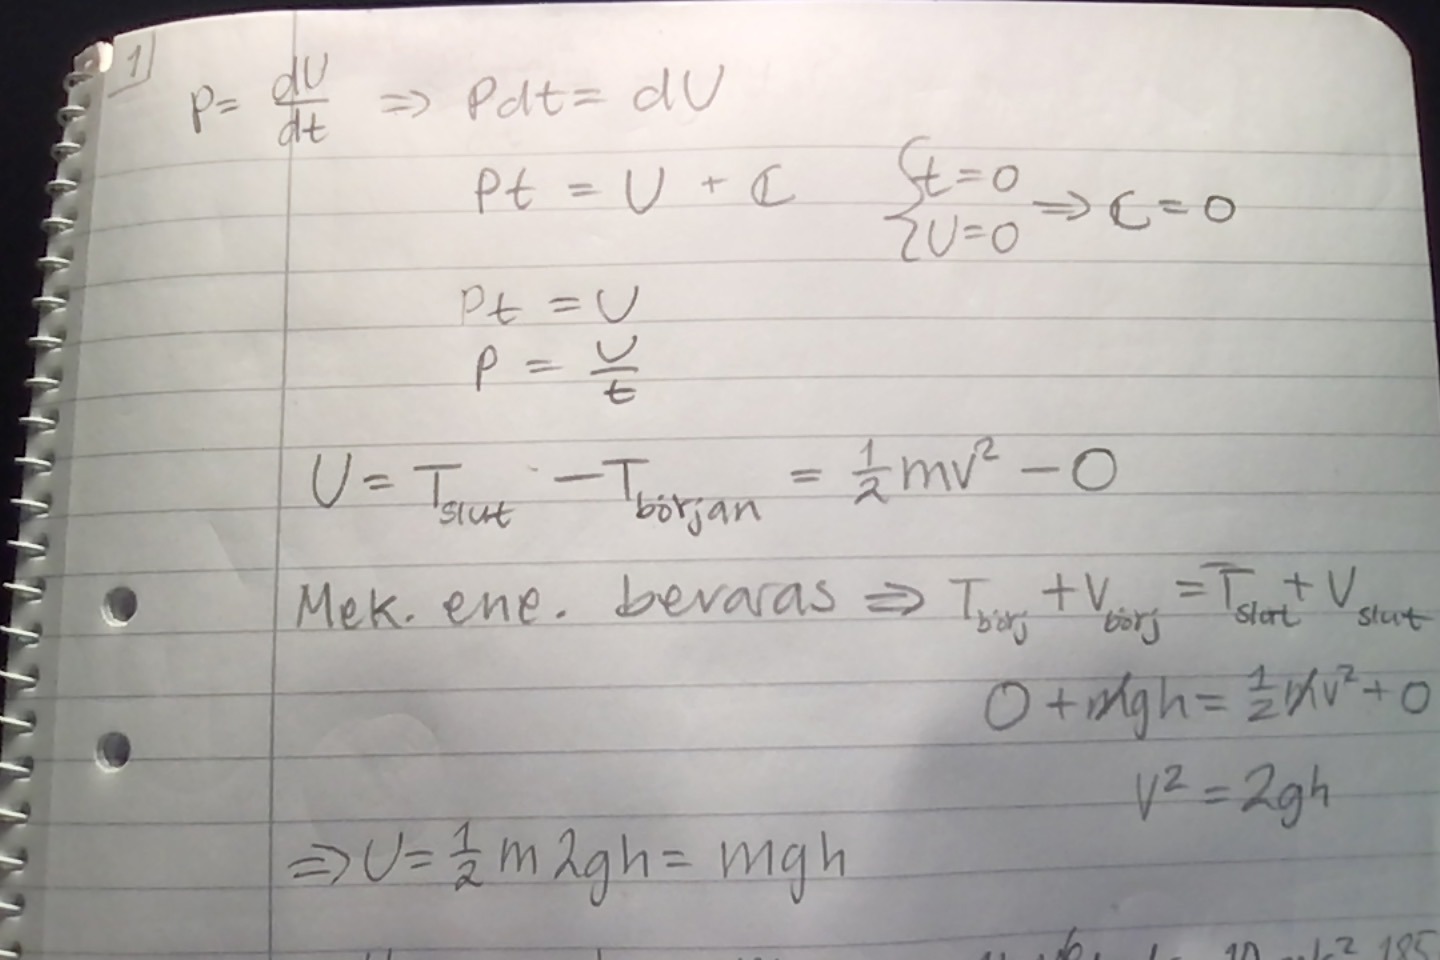 1
P = dU/dt ⇒ Pdt = dU
Pt = U + C {t=0 U=0 ⇒ C=0
Pt = U
P = U/t
U = T_slut - T_början = 1/2 mv² - 0
Mek. ene. bevaras ⇒ T_börj + V_börj = T_slut + V_slut
0 + mgh = 1/2 mv² + 0
v² = 2gh
⇒ U = 1/2 m 2gh = mgh